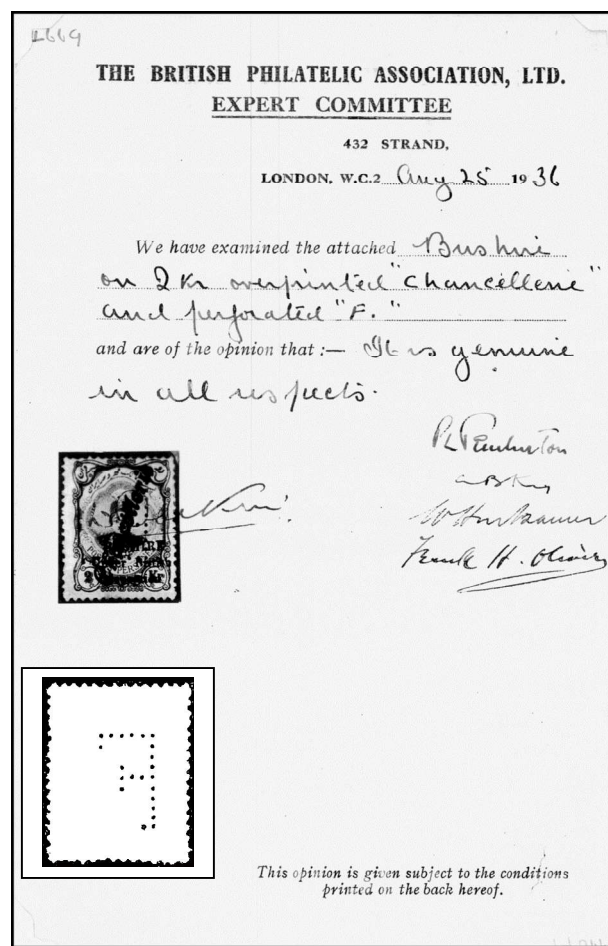 2669
THE BRITISH PHILATELIC ASSOCIATION, LTD.
EXPERT COMMITTEE
432 STRAND,
LONDON. W.C.2 Aug 25 1936
We have examined the attached Bushire
on 2 Kr overprinted "Chancellerie"
and perforated "F."
and are of the opinion that :— It is genuine
in all respects.
PL Pemberton
Frank H. Oliver
2 Kr
F
This opinion is given subject to the conditions
printed on the back hereof.